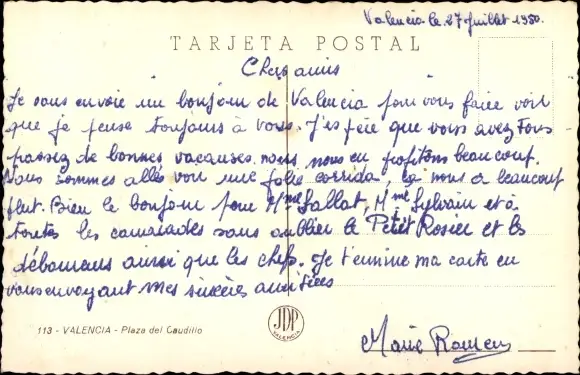 Valencia le 27 Juillet 1950.
TARJETA POSTAL
Chers amis
Je vous envoie un bonjour de Valencia pour vous faire voir
que je pense toujours à vous. J'espère que vous avez tous
passez de bonnes vacances. nous, nous en profitons beaucoup.
Nous sommes allés voir une jolie corrida, ça nous a beaucoup
plut. Bien le bonjour pour Mme Lallat, Mme Sylvain et à
toutes les camarades sans oublier le Petit Rosier et les
ainsi que les chefs. Je termine ma carte en
vous envoyant mes sincères amitiées
113 - VALENCIA - Plaza del Caudillo
JDP
VALENCIA
Marie